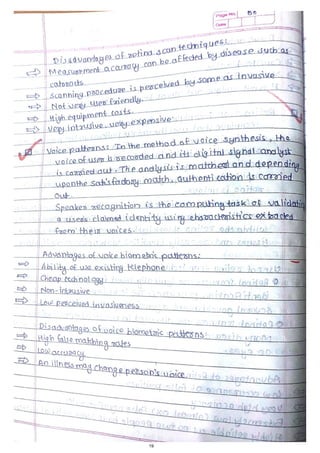 Page No. 55
Date
Disadvantages of retina scan techniques:
⇒ Measurement accuracy can be affected by disease such as
cataracts.
⇒ Scanning procedure is perceived by some as Invasive
⇒ Not very user friendly.
⇒ High equipment costs.
⇒ Very Intrusive, very expensive.
Voice patterns: In the method of voice synthesis, the
voice of user is recorded and its digital signal analyst
is carried out. The analysis is matched and depending
upon the satisfactory match, authentication is carried
out.
Speaker recognition is the computing task of validating
a users claimed identity using characteristics extracted
from their voices.
Advantages of voice biometric patterns:
⇒ Ability of use existing telephone
⇒ Cheap technology
⇒ Non-Intrusive
⇒ Low perceived invasiveness
Disadvantages of voice biometric patterns:
⇒ High false matching rates
⇒ low accuracy
⇒ An illness may change person's voice.